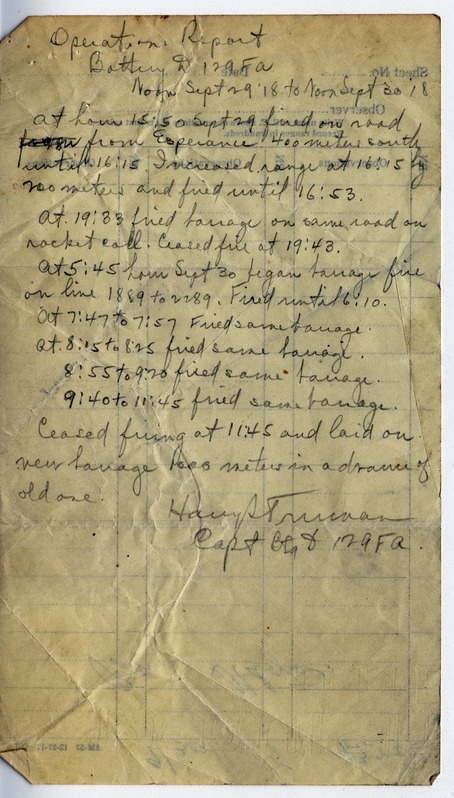 Operations Report
Battery D 129 FA
Noon Sept 29 '18 to Noon Sept 30 '18
At hour 15:50 Sept 29 fired on road
from Esperance 400 meters south
until 16:15. Increased range at 16:15 by
200 meters and fired until 16:53.
At 19:33 fired barrage on same road on
rocket call. Ceased fire at 19:43.
At 5:45 hour Sept 30 began barrage fire
on line 1889 to 2289. Fired until 6:10.
At 7:47 to 7:57 Fired same barrage.
At 8:15 to 8:25 fired same barrage.
8:55 to 9:20 fired same barrage.
9:40 to 11:45 fired same barrage.
Ceased firing at 11:45 and laid on
new barrage 1000 meters in advance of
old one.
Harry S Truman
Capt Btry D 129 FA.
Sheet No.
Date
Observer